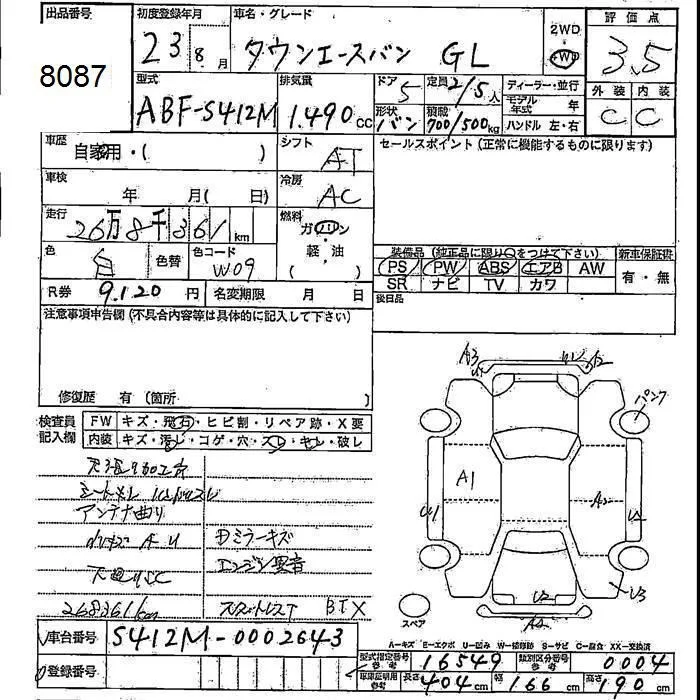 出品番号 初度登録年月 車名・グレード 評価点
8087 23 8月 タウンエースバン GL 2WD 4WD 3.5
型式 排気量 ドア 5 定員 2/5人 ディーラー・並行 外装 内装
ABF-S412M 1.490cc 形状 バン 積載 700/500kg モデル年式 年 C C
ハンドル 左・右
車歴 自家用・( ) シフト AT セールスポイント(正常に機能するものに限ります)
車検 年 月( 日) 冷房 AC
走行 26万8千361km 燃料 ガソリン
色 白 色替 色コード W09 軽・油 ( ) 装備品(純正品に限り○をつけて下さい) 新車保証書
PS PW ABS エアB AW 有・無
SR ナビ TV カワ
R券 9.120円 名変期限 月 日 後日品
注意事項申告欄(不具合内容等は具体的に記入して下さい)
修復歴 有(箇所 )
検査員記入欄 FW キズ・飛石・ヒビ割・リペア跡・X要
内装 キズ・汚レ・コゲ・穴・スレ・キレ・破レ
アンテナ曲り
ミラーキズ
エンジン異音
268361km BTX
A3 パンク
A1 A2
U1
U2 U3
スペア
車台番号 S412M-0002643
登録番号
A-キズ E-エクボ U-凹み W-補修跡 S-サビ C-腐食 XX-交換済
型式指定番号 参考 16549 類別区分番号 参考 0004
車庫証明用 参考 長さ 404cm 幅 166cm 高さ 190cm